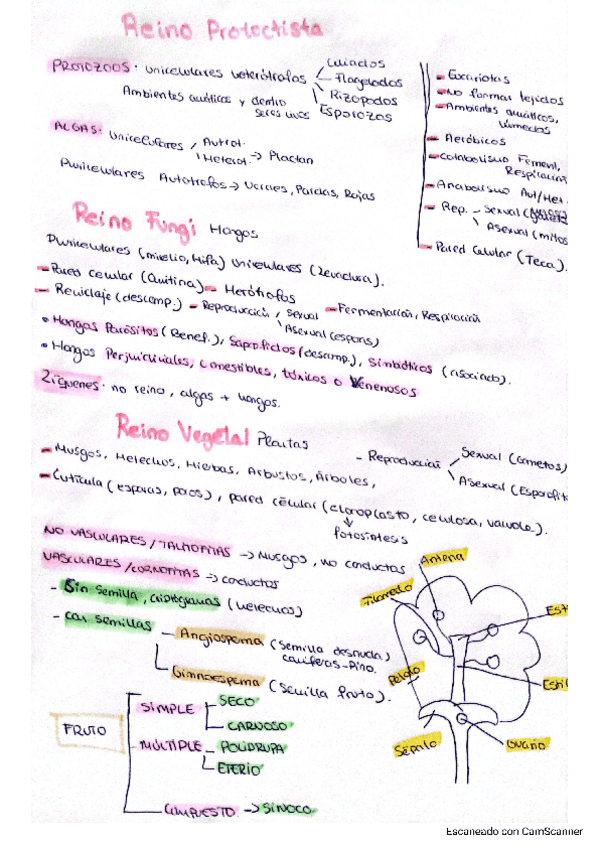 Reino Protoctista
PROTOZOOS · Unicelulares heterótrofos
Ciliados
Flagelados
Rizopodos
Esporozos
Ambientes acuáticos y dentro
seres vivos
- Eucariotas
- No forman tejidos
- Ambientes acuáticos,
húmedos
- Aeróbicos
- Catabolismo Ferment,
Respiración
- Anabolismo Aut/Het.
- Rep. - Sexual
Asexual (mitos
- Pared Celular (Teca).
ALGAS: Unicelulares
Autrot.
Heterot. → Plactan
Pluricelulares Autotrofos → Verdes, Pardas, Rojas
Reino Fungi Hongos
Pluricelulares (micelio, Hifa) Unicelulares (Levadura).
- Pared celular (Quitina) - Heterótrofos
- Reciclaje (descomp.) - Reproducción
Sexual
Asexual (espora)
- Fermentación, Respiración
• Hongos Parásitos (Benef.), Saprofíticos (descomp.), Simbióticos (asociado).
• Hongos Perjuiciviales, comestibles, tóxicos o Venenosos
Líquenes · no reino, algas + hongos.
Reino Vegetal Plantas
- Musgos, Helechos, Hierbas, Arbustos, Árboles,
- Reproducción
Sexual (Gametos)
Asexual (Esporofit
- Cutícula (esporas, poros), pared célular (cloroplasto, celulosa, vacuola).
Fotosíntesis
NO VASCULARES / TALHOFITAS → Musgos, no conductos
VASCULARES / CORMOFITAS → conductos
- Sin semilla, criptógamas (Helechos)
- Con semillas
- Angiosperma (semilla desnuda)
coníferas - Pino.
Gimnosperma (Semilla fruto).
Antena
Filamento
Est
Pétalo
Estil
Sépalo
Ovario
FRUTO
SIMPLE
SECO
CARNOSO
MÚLTIPLE
POLIDRUPA
ETERIO
COMPUESTO → SINOCO
Escaneado con CamScanner